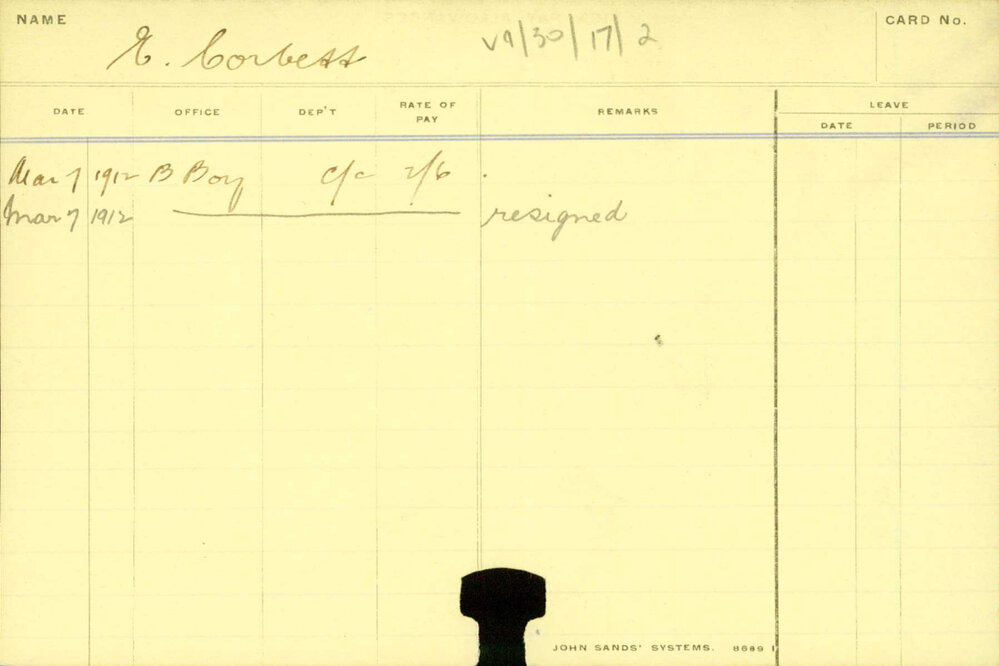 NAME E. Corbett V9/30/17/2 CARD No.
DATE OFFICE DEP'T RATE OF PAY REMARKS LEAVE
DATE PERIOD
Mar 7 1912 B Boy C/c 2/6 .
Mar 7 1912 resigned
JOHN SANDS' SYSTEMS. 8689